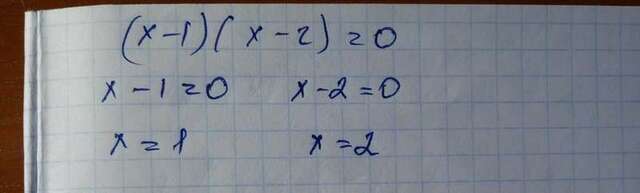 (x-1)(x-2)=0
x-1=0 x-2=0
x=1 x=2